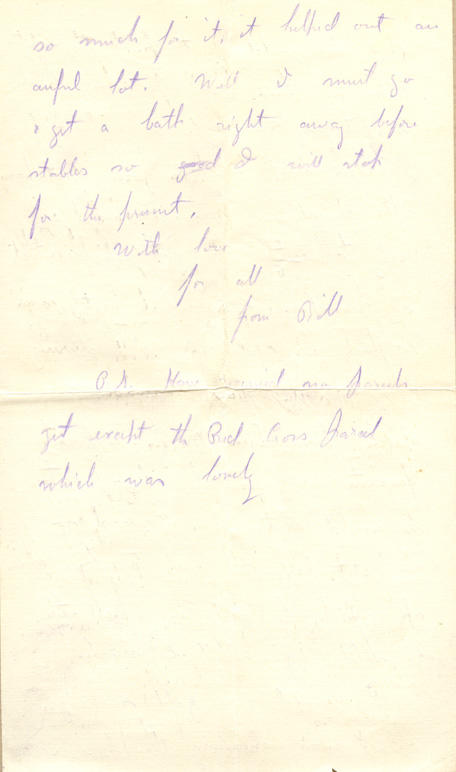 so much for it, it helped out an
awful lot. Well I must go
& get a bath right away before
stables so good I will stop
for the present.
With love
for all
from Bill
P.S. Have received no parcels
yet except the Red Cross Parcel
which was lovely